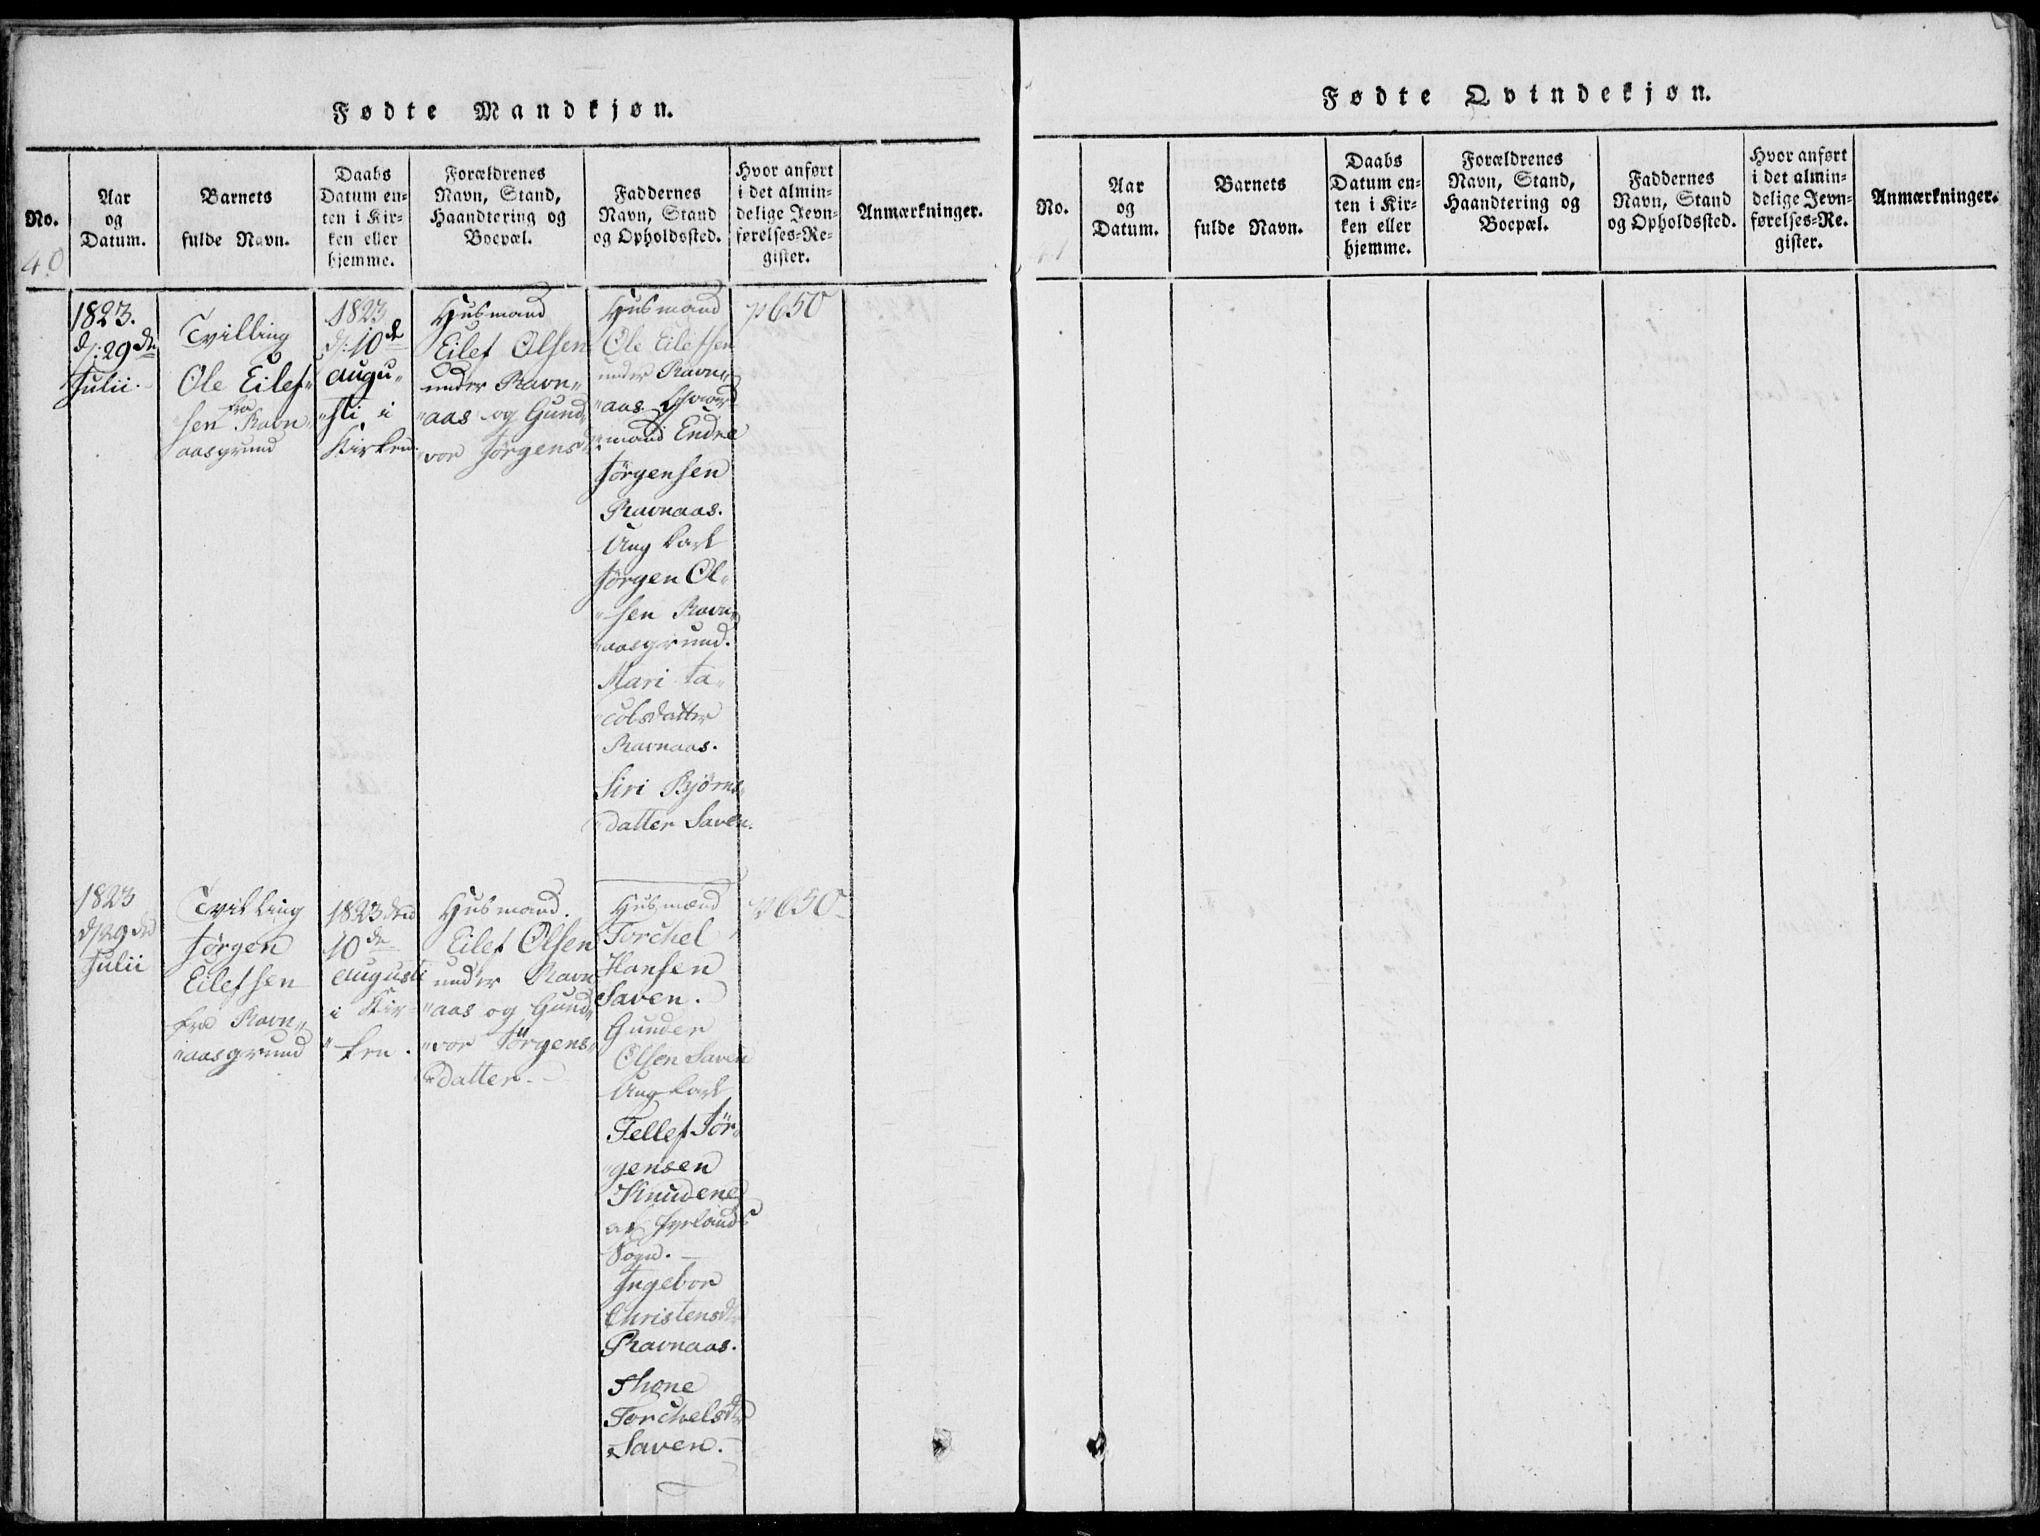 Fødte Mandkjøn.
No.
Aar
og
Datum.
Barnets
fulde Navn.
Daabs
Datum en-
ten i Kir-
ken eller
hjemme.
Forældrenes
Navn, Stand,
Haandtering og
Boepæl.
Faddernes
Navn, Stand
og Opholdssted.
Hvor anført
i det almin-
delige Jevn-
førelses-Re-
gister.
Anmærkninger.
40
1823.
d/: 29de
Julii.
Tvilling
Ole Eilef-
fra
sen Ravn
aasgrund
1823
d/: 10de
augu„
„sti i
Kirken.
Husmand
Eilef Olsen
under Ravn„
„aas og Gund„
„vor Jørgensd:
Husmand
Ole Eilefsen
under Ravn„
„aas.
„mand Endre
Jørgensen
Ravnaas.
Ung Karl
Jørgen Ol„
„sen Ravn„
„aasgrund.
Mari Ja„
„cobsdatter
Ravnaas.
Siri Bjørns„
„datter Saven.
p 650
1823
d/29de
Julii
Tvilling
Jørgen
Eilefsen
fra Ravn„
„aasgrund
1823 den
10de
augusti
i Kir„
„ken.
Husmand.
Eilef Olsen
under Ravn
„aas og Gund„
„vor Jørgens„
„datter.
Husmænd
Torchel
Hansen
Saven.
Gunder
Olsen Saven
Ung Karl
Tellef Jør„
„gensen
Knudene
af Fyrlands
Sogn.
Ingebor
Christensdr
Ravnaas.
Thone
Torchelsdr
Saven.
p 650
Fødte Qvindekjøn.
No.
Aar
og
Datum.
Barnets
fulde Navn.
Daabs
Datum en-
ten i Kir-
ken eller
hjemme.
Forældrenes
Navn, Stand,
Haandtering og
Boepæl.
Faddernes
Navn, Stand
og Opholdssted.
Hvor anført
i det almin-
delige Jevn-
førelses-Re-
gister.
Anmærkninger.